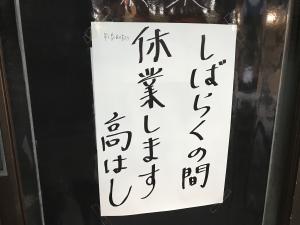 しばらくの間
休業します
高はし